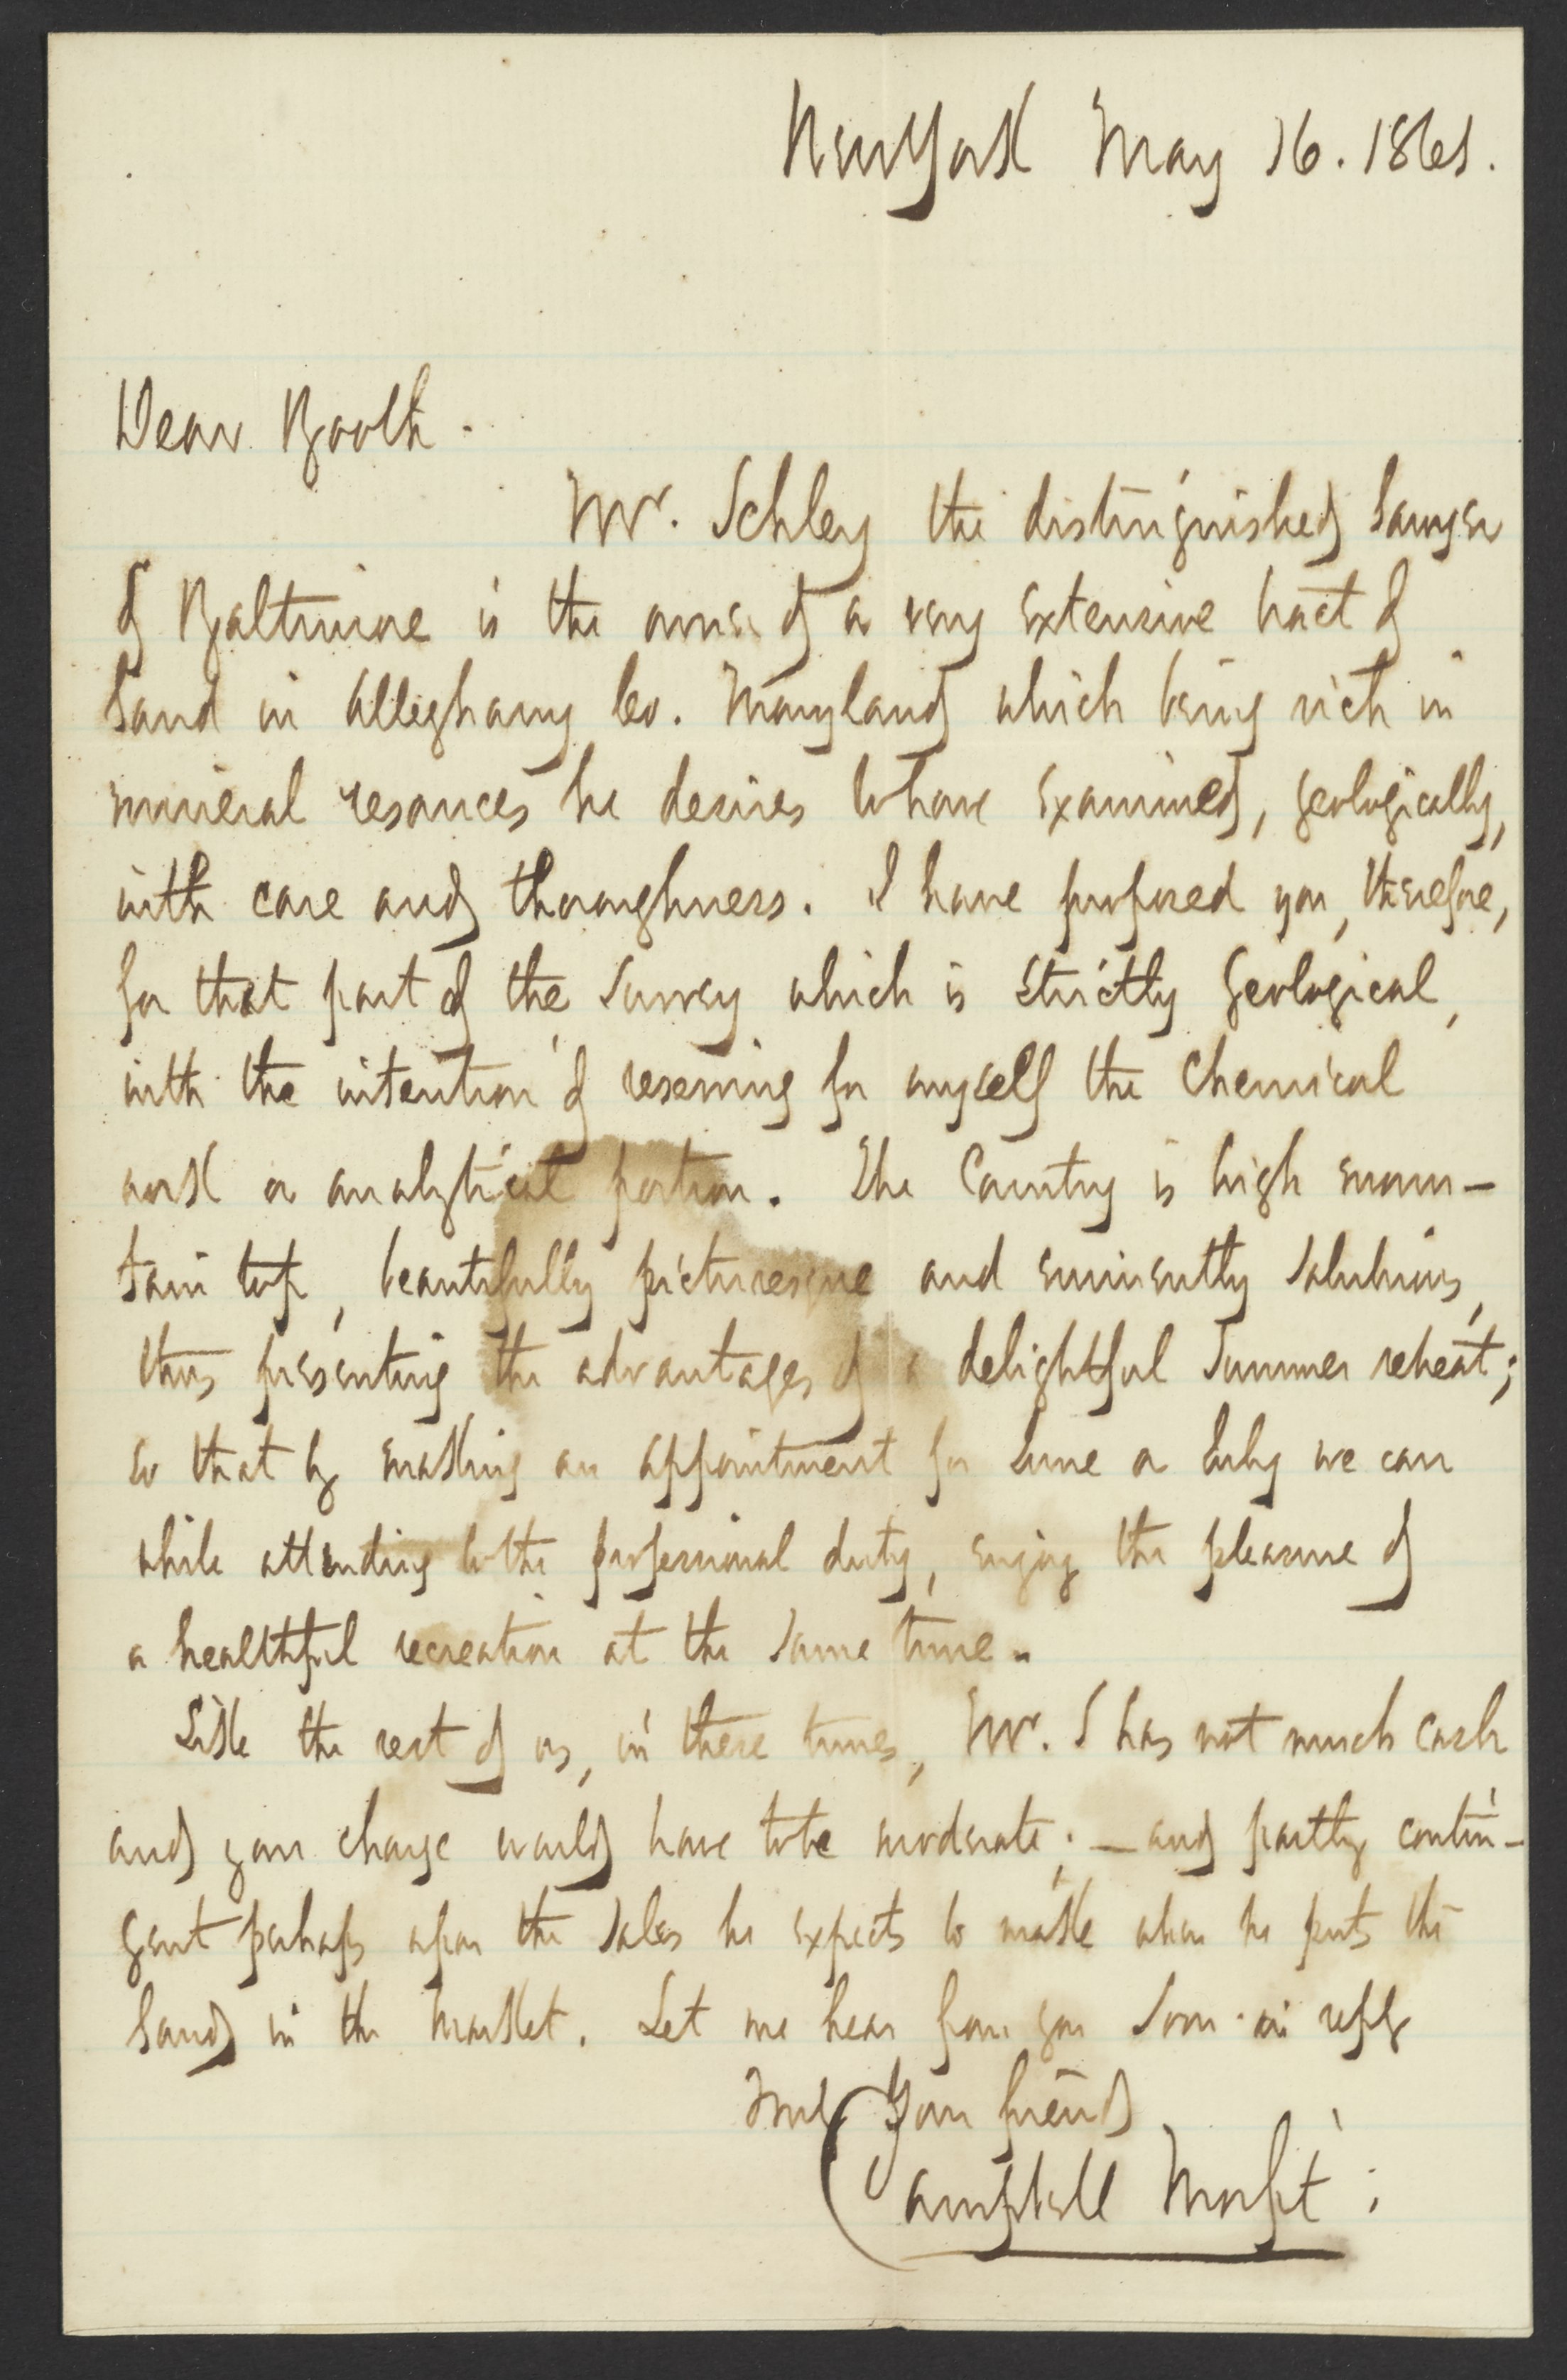 New York May 16. 1861.
Dear Booth.
Mr. Schley the distinguished Lawyer
of Baltimore is the owner of a very extensive tract of
Land in Alleghany Co. Maryland which being rich in
mineral resources he desires to have examined, geologically,
with care and thoroughness. I have proposed you, therefore,
for that part of the Survey which is Strictly Geological,
with the intention of reserving for myself the Chemical
work or analytical portion. The Country is high moun-
tain top, beautifully picturesque and eminently Salubrious,
thus presenting the advantages of a delightful Summer retreat;
so that by making an appointment for June or July we can
while attending to the professional duty, enjoy the pleasure of
a healthful recreation at the Same time.
Like the rest of us, in these times, Mr. S has not much cash
and your charge would have to be moderate; — and partly contin-
gent perhaps upon the Sales he expects to make when he puts the
Land in the Market. Let me hear from you Soon in reply
Truly Your friend
Campbell Morfit